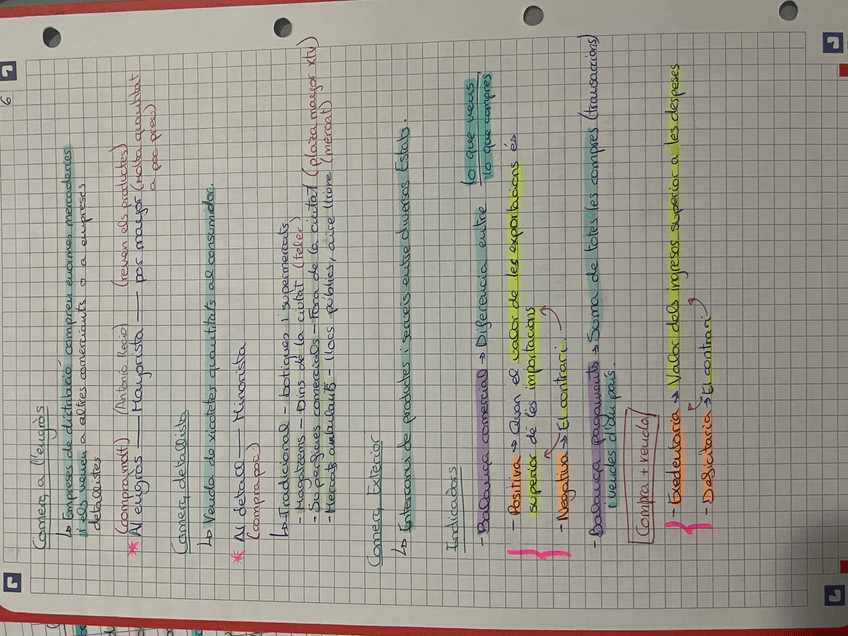 6
Comerç a l'engròs
↳ Empreses de distribució compren enormes mercaderies
i els venen a altres comerciants o a empreses
detallistes
(compra molt) (Antonio Recio) (revèn els productes)
* Al engròs — Mayorista — por mayor (molta quantitat
a poc preu)
Comerç detallista
↳ Venda de xicotetes quantitats al consumidor.
* Al detall — Minorista
(compra poc)
↳ Tradicional - botigues i supermercats
- Magatzems - Dins de la ciutat (teler)
- Superfícies comercials - Fora de la ciutat (plaza mayor xtv)
- Mercats ambulants - llocs públics, aire lliure (mercat)
Comerç Exterior
↳ Intercanvi de productes i serveis entre diversos Estats.
Indicadors
- Balança comercial → Diferència entre lo que vens
lo que compres
- Positiva → Quan el valor de les exportacions és
superior de les importacions
- Negativa → El contrari
- Balança pagaments → Suma de totes les compres (transaccions)
i vendes d'un país.
(Compra + venda)
- Exedentaria → Valor dels ingresos superior a les despeses
- Deficitaria → El contrari